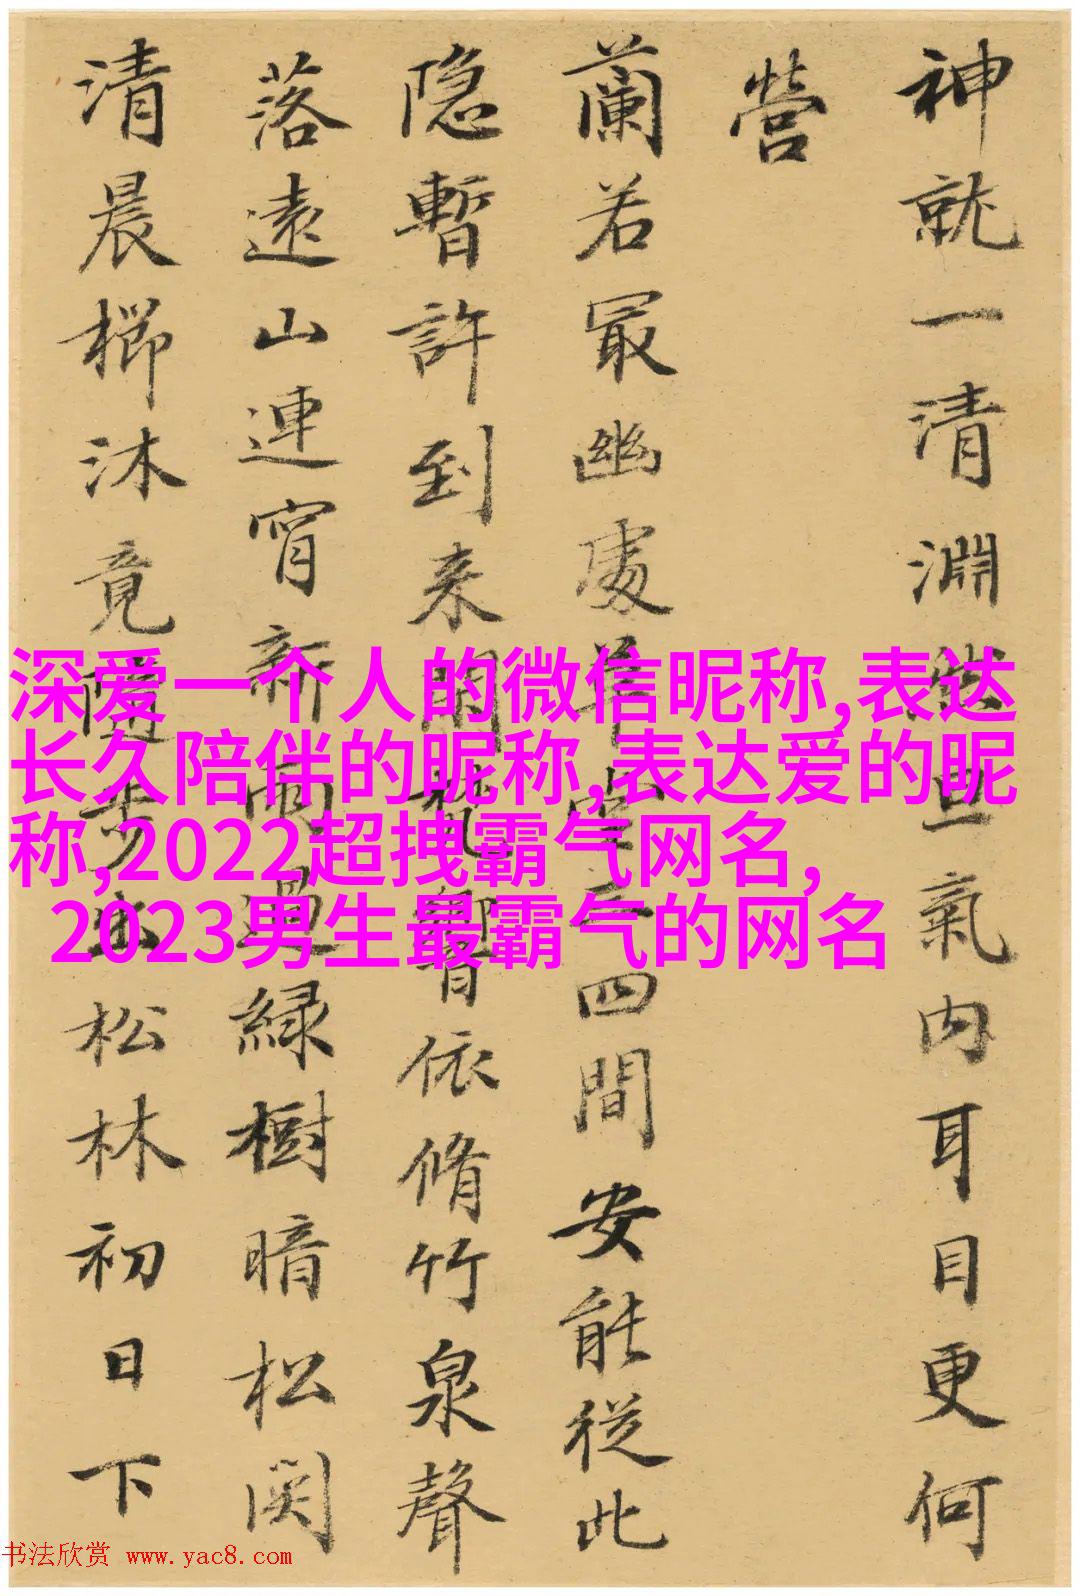 神就一清淵然旦氣内耳目更何
營
蘭若冣幽處堂三四間安能從此
隐暫許到来閒梵響依脩竹泉聲
落遠山連宵新雨過緑樹暗松関
清晨櫛沐竟隨步出松林初日下
深爱一个人的微信昵称,表达
长久陪伴的昵称,表达爱的昵
称,2022超拽霸气网名,
2023男生最霸气的网名
书法欣赏 www.yac8.com